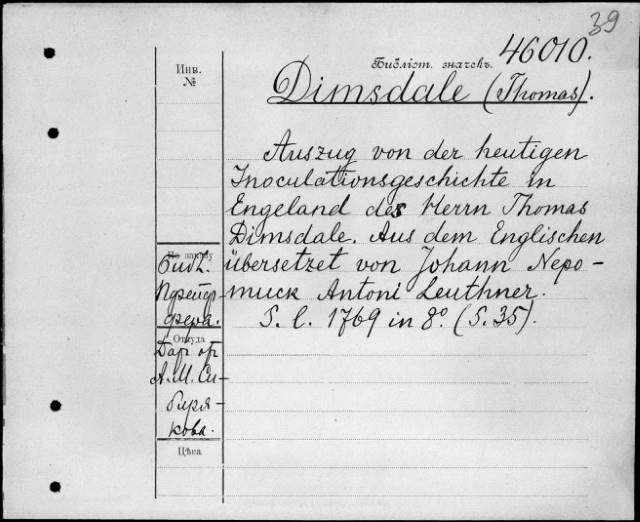 39
46010.
Инв.
№
Библіот. значекъ.
Dimsdale (Thomas).
Auszug von der heutigen
Inoculationsgeschichte in
Engeland des Herrn Thomas
Dimsdale. Aus dem Englischen
übersetzet von Johann Nepo-
muck Antoni Leuthner.
S. l. 1769 in 8º. (S. 35).
По заказу
Библ.
Откуда
Дар от
А. М. Си-
биря-
кова.
Цѣна